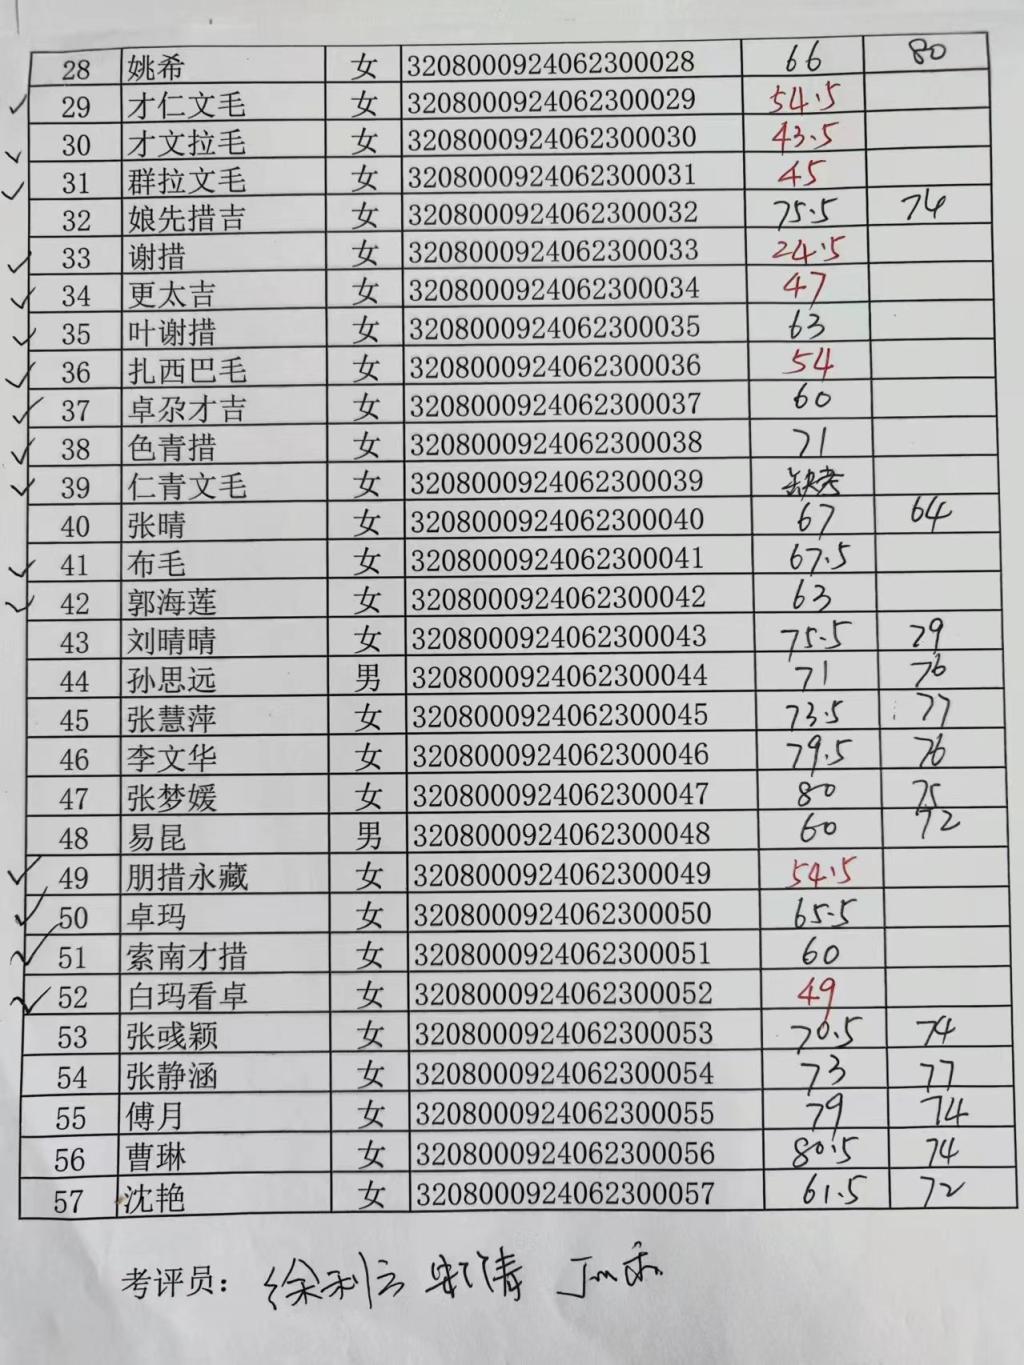 28 姚希 女 3208000924062300028 66 80
29 才仁文毛 女 3208000924062300029 54.5
30 才文拉毛 女 3208000924062300030 43.5
31 群拉文毛 女 3208000924062300031 45
32 娘先措吉 女 3208000924062300032 75.5 74
33 谢措 女 3208000924062300033 24.5
34 更太吉 女 3208000924062300034 47
35 叶谢措 女 3208000924062300035 63
36 扎西巴毛 女 3208000924062300036 54
37 卓尕才吉 女 3208000924062300037 60
38 色青措 女 3208000924062300038 71
39 仁青文毛 女 3208000924062300039 缺考
40 张晴 女 3208000924062300040 67 64
41 布毛 女 3208000924062300041 67.5
42 郭海莲 女 3208000924062300042 63
43 刘晴晴 女 3208000924062300043 75.5 79
44 孙思远 男 3208000924062300044 71 76
45 张慧萍 女 3208000924062300045 73.5 77
46 李文华 女 3208000924062300046 79.5 76
47 张梦媛 女 3208000924062300047 80 75
48 易昆 男 3208000924062300048 60 72
49 朋措永藏 女 3208000924062300049 54.5
50 卓玛 女 3208000924062300050 65.5
51 索南才措 女 3208000924062300051 60
52 白玛看卓 女 3208000924062300052 49
53 张彧颖 女 3208000924062300053 70.5 74
54 张静涵 女 3208000924062300054 73 77
55 傅月 女 3208000924062300055 79 74
56 曹琳 女 3208000924062300056 80.5 74
57 沈艳 女 3208000924062300057 61.5 72
考评员：徐利云